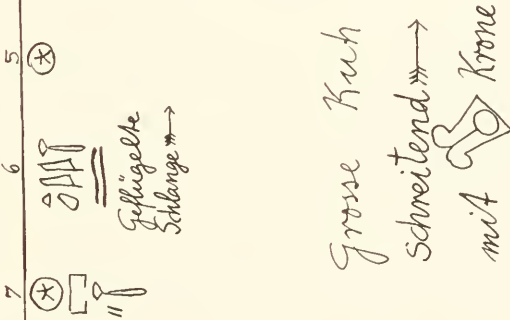 5
6
7
Geflügelte
Schlange
Grosse Kuh
schreitend
mit Krone